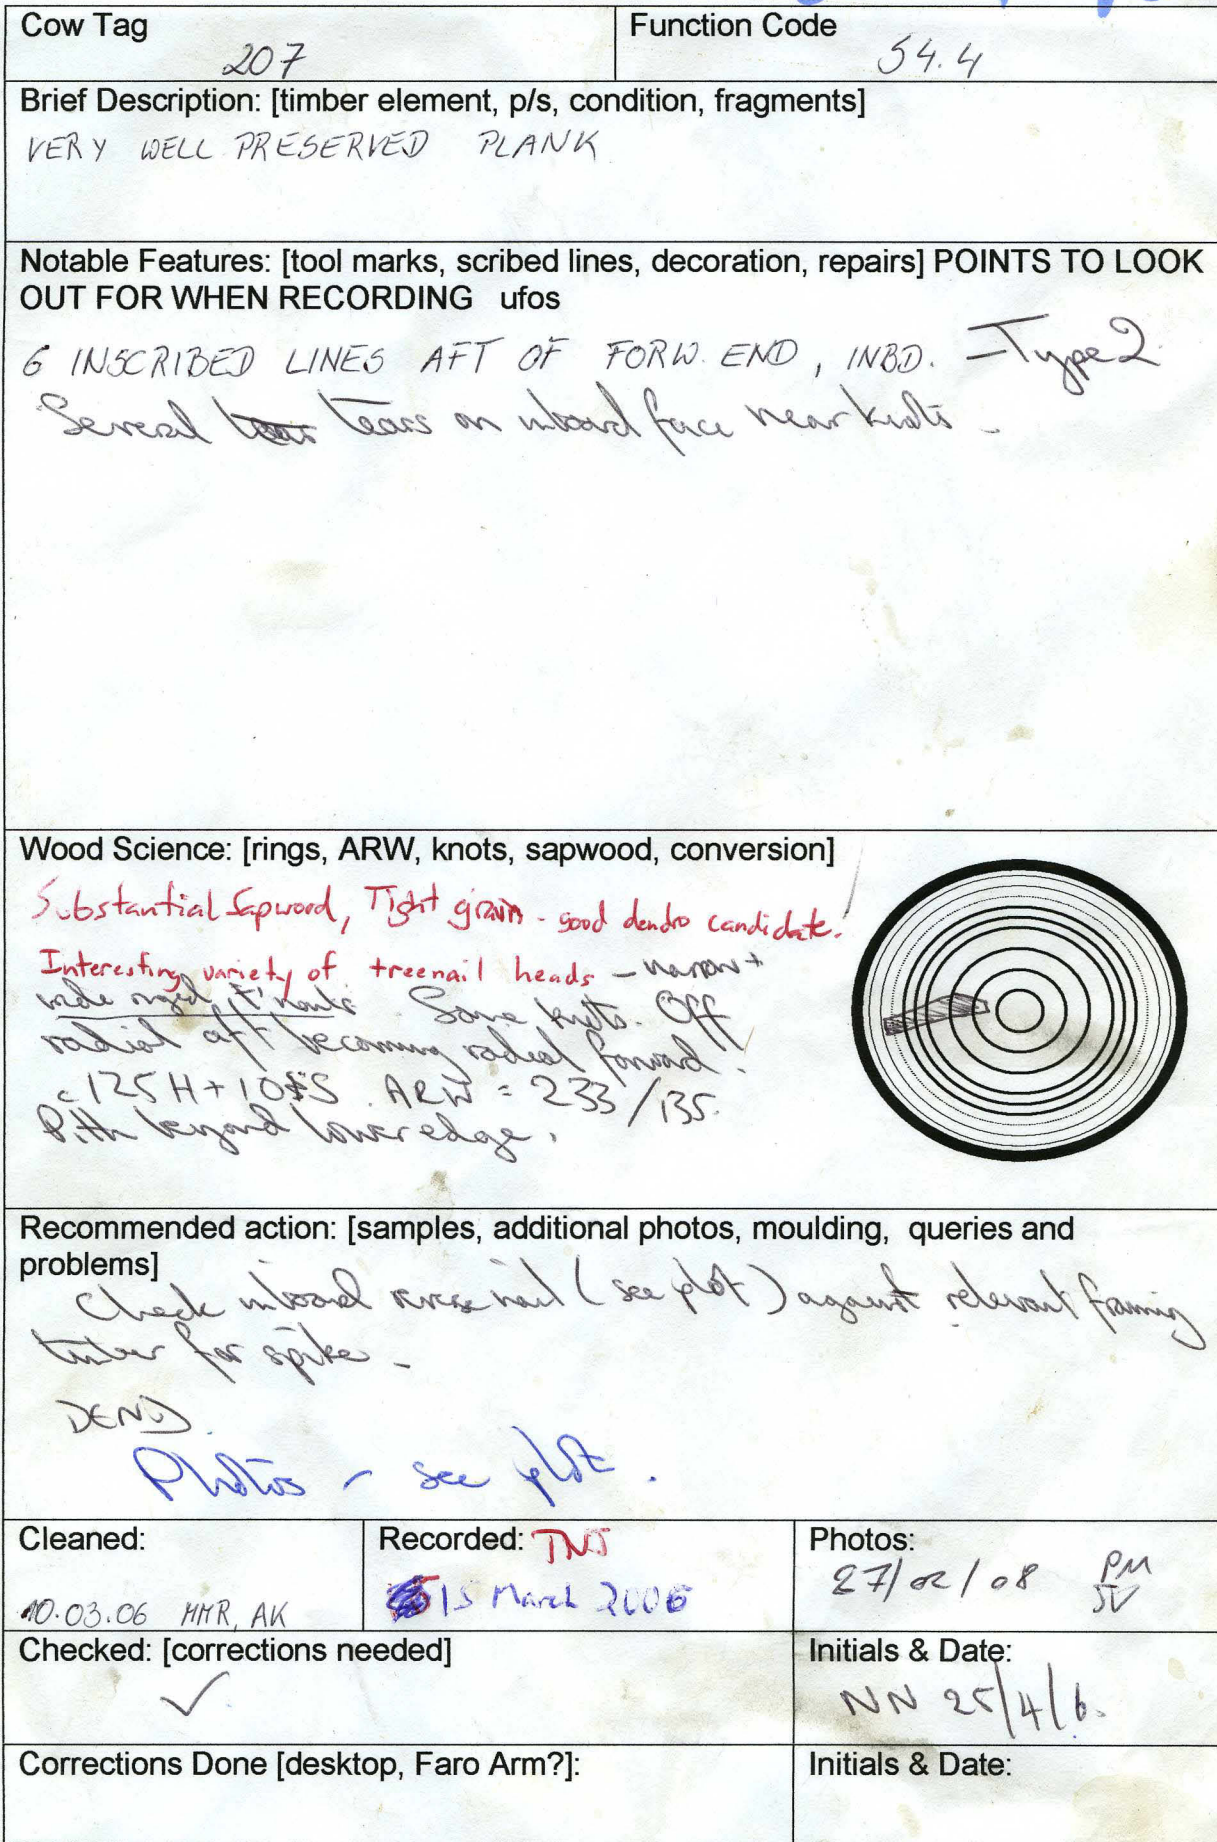 Cow Tag
207
Function Code
S4.4
Brief Description: [timber element, p/s, condition, fragments]
VERY WELL PRESERVED PLANK
Notable Features: [tool marks, scribed lines, decoration, repairs] POINTS TO LOOK
OUT FOR WHEN RECORDING ufos
6 INSCRIBED LINES AFT OF FORW. END, INBD. - Type 2
Several tears on inboard face near knots -
Wood Science: [rings, ARW, knots, sapwood, conversion]
Substantial Sapwood, Tight grain - good dendro candidate.
Interesting variety of treenail heads - narrow +
wide Some knots. Off
radial aft becoming radial forward.
c125H+10S. ARW = 233/135.
Pith beyond lower edge.
Recommended action: [samples, additional photos, moulding, queries and
problems]
Check inboard nail (see plot) against relevant framing
timber for spike -
DENDRO
Photos - see plot.
Cleaned:
10.03.06 MMR, AK
Recorded: TNJ
15 March 2006
Photos:
27/02/08 PM
JV
Checked: [corrections needed]
✓
Initials & Date:
NN 25/4/6.
Corrections Done [desktop, Faro Arm?]:
Initials & Date: